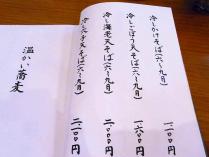 冷しかけそば(六〜九月) 一一〇〇円
冷しごぼう天そば(六〜九月) 一六〇〇円
冷し海老天そば(六〜九月) 二一〇〇円
冷し穴子天そば(六〜九月) 二二〇〇円
温かい蕎麦